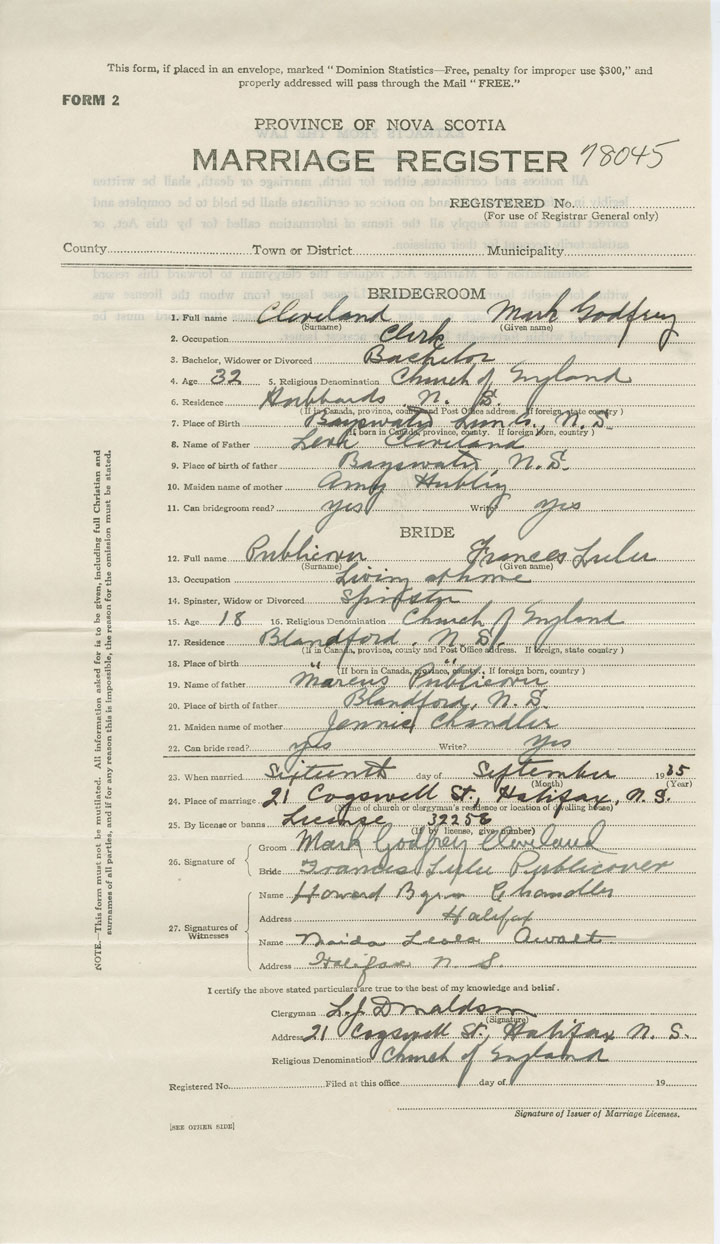 This form, if placed in an envelope, marked "Dominion Statistics—Free, penalty for improper use $300," and
properly addressed will pass through the Mail "FREE."
FORM 2
PROVINCE OF NOVA SCOTIA
MARRIAGE REGISTER 78045
REGISTERED No.
(For use of Registrar General only)
County Town or District Municipality
BRIDEGROOM
1. Full name Cleveland Mark Godfrey
(Surname) (Given name)
2. Occupation Clerk
3. Bachelor, Widower or Divorced Bachelor
4. Age 32 5. Religious Denomination Church of England
6. Residence Hubbards N. S.
(If in Canada, province, county and Post Office address. If foreign state country)
7. Place of Birth Bayswater Lun. Co., N. S.
(If born in Canada, province, county. If foreign born, country)
8. Name of Father Cleveland
9. Place of birth of father Bayswater, N. S.
10. Maiden name of mother Amy
11. Can bridegroom read? yes Write? yes
BRIDE
12. Full name Publicover Frances
(Surname) (Given name)
13. Occupation Living at home
14. Spinster, Widow or Divorced Spinster
15. Age 18 16. Religious Denomination Church of England
17. Residence Blandford, N. S.
(If in Canada, province, county and Post Office address. If foreign, state country)
18. Place of birth " "
(If born in Canada, province, county. If foreign born, country)
19. Name of father Marcus Publicover
20. Place of birth of father Blandford, N. S.
21. Maiden name of mother Jennie Chandler
22. Can bride read? yes Write? yes
23. When married Sixteenth day of September 1935
(Month) (Year)
24. Place of marriage 21 Cogswell St., Halifax, N. S.
(Name of church or clergyman's residence or location of dwelling house)
25. By license or banns License 32256
(If by license, give number)
26. Signature of Groom Mark Godfrey Cleveland
Bride Frances Publicover
27. Signatures of Witnesses Name Howard Chandler
Address Halifax
Name Awalt
Address Halifax N. S.
I certify the above stated particulars are true to the best of my knowledge and belief.
Clergyman L. J. Donaldson
(Signature)
Address 21 Cogswell St., Halifax N. S.
Religious Denomination Church of England
Registered No. Filed at this office day of 19
Signature of Issuer of Marriage Licenses.
[SEE OTHER SIDE]
NOTE.—This form must not be mutilated. All information asked for is to be given, including full Christian and
surnames of all parties, and if for any reason this is impossible, the reason for the omission must be stated.